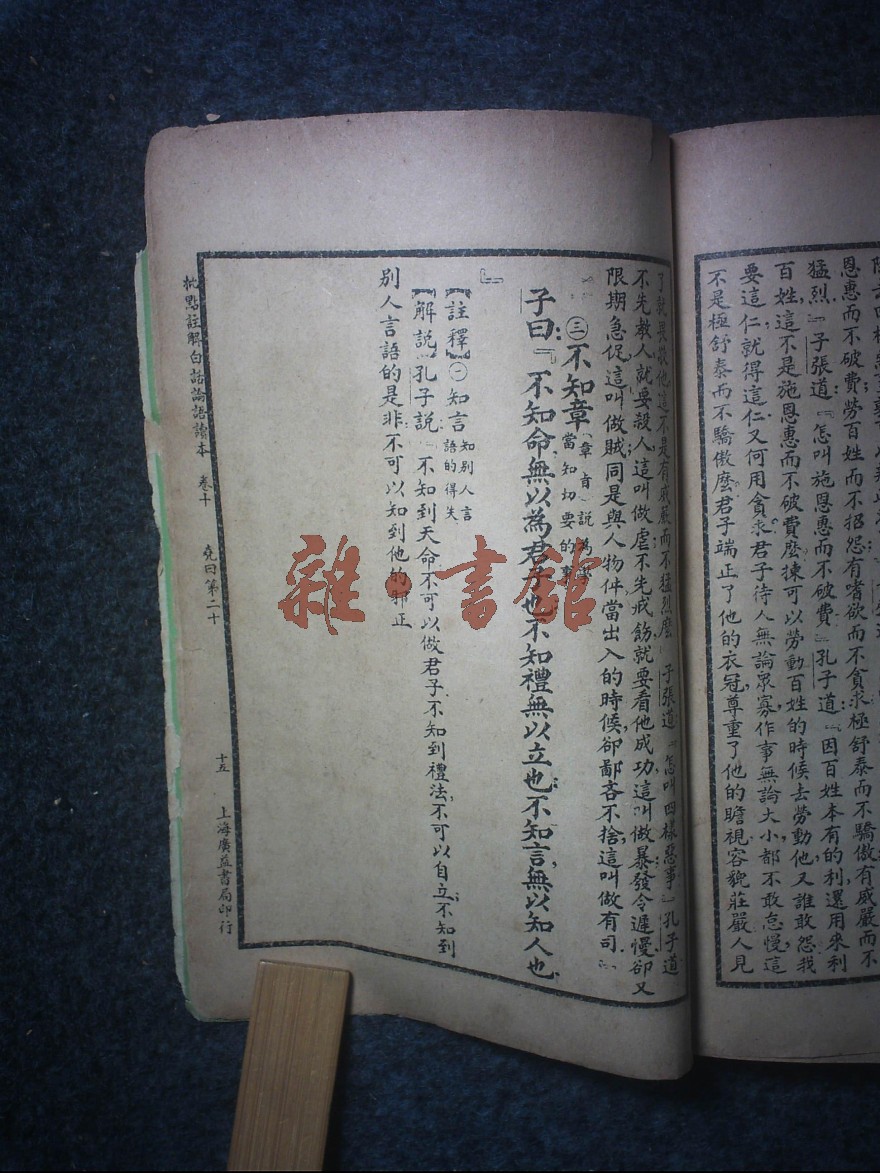 恩惠而不破費勞百姓而不招怨有嗜欲而不貪求極舒泰而不驕傲有威嚴而不
猛烈』子張道『怎叫施恩惠而不破費』孔子道『因百姓本有的利還用來利
百姓這不是施恩惠而不破費麼揀可以勞動百姓的時候去勞動他又誰敢怨我
要這仁就得這仁又何用貪求君子待人無論眾寡作事無論大小都不敢怠慢這
不是極舒泰而不驕傲麼君子端正了他的衣冠尊重了他的瞻視容貌莊嚴人見
了就畏敬他這不是有威嚴而不猛烈麼』子張道『怎叫四樣惡事』孔子道
不先教人就要殺人這叫做虐不先戒飭就要看他成功這叫做暴發令遲慢卻又
限期急促這叫做賊同是與人物件當出入的時候卻鄙吝不捨這叫做有司
㊂不知章（章旨）說為
當知切要的事
子曰：『不知命無以為君子也不知禮無以立也不知言無以知人也
』
【註釋】㊀知言 知別人言語的得失
【解說】孔子說『不知到天命不可以做君子不知到禮法不可以自立不知到
別人言語的是非不可以知到他的邪正
批點註解白話論語讀本 卷十 堯曰第二十 十五 上海廣益書局印行
雜·書館